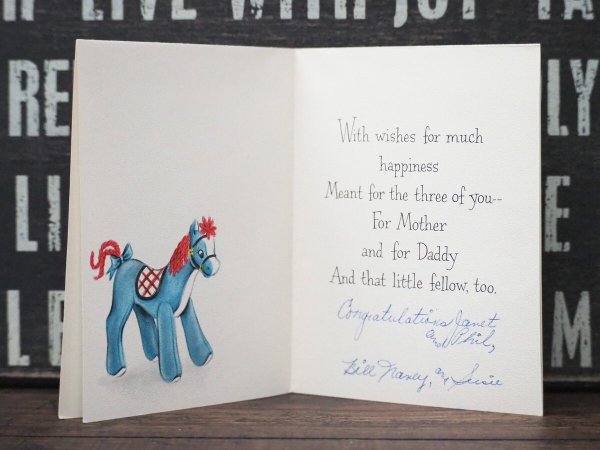 LIVE WITH JOY
RE
LY
LI
E
LE
M
With wishes for much
happiness
Meant for the three of you--
For Mother
and for Daddy
And that little fellow, too.
Congratulations Janet
and Phil,
Bill Nancy, and Susie